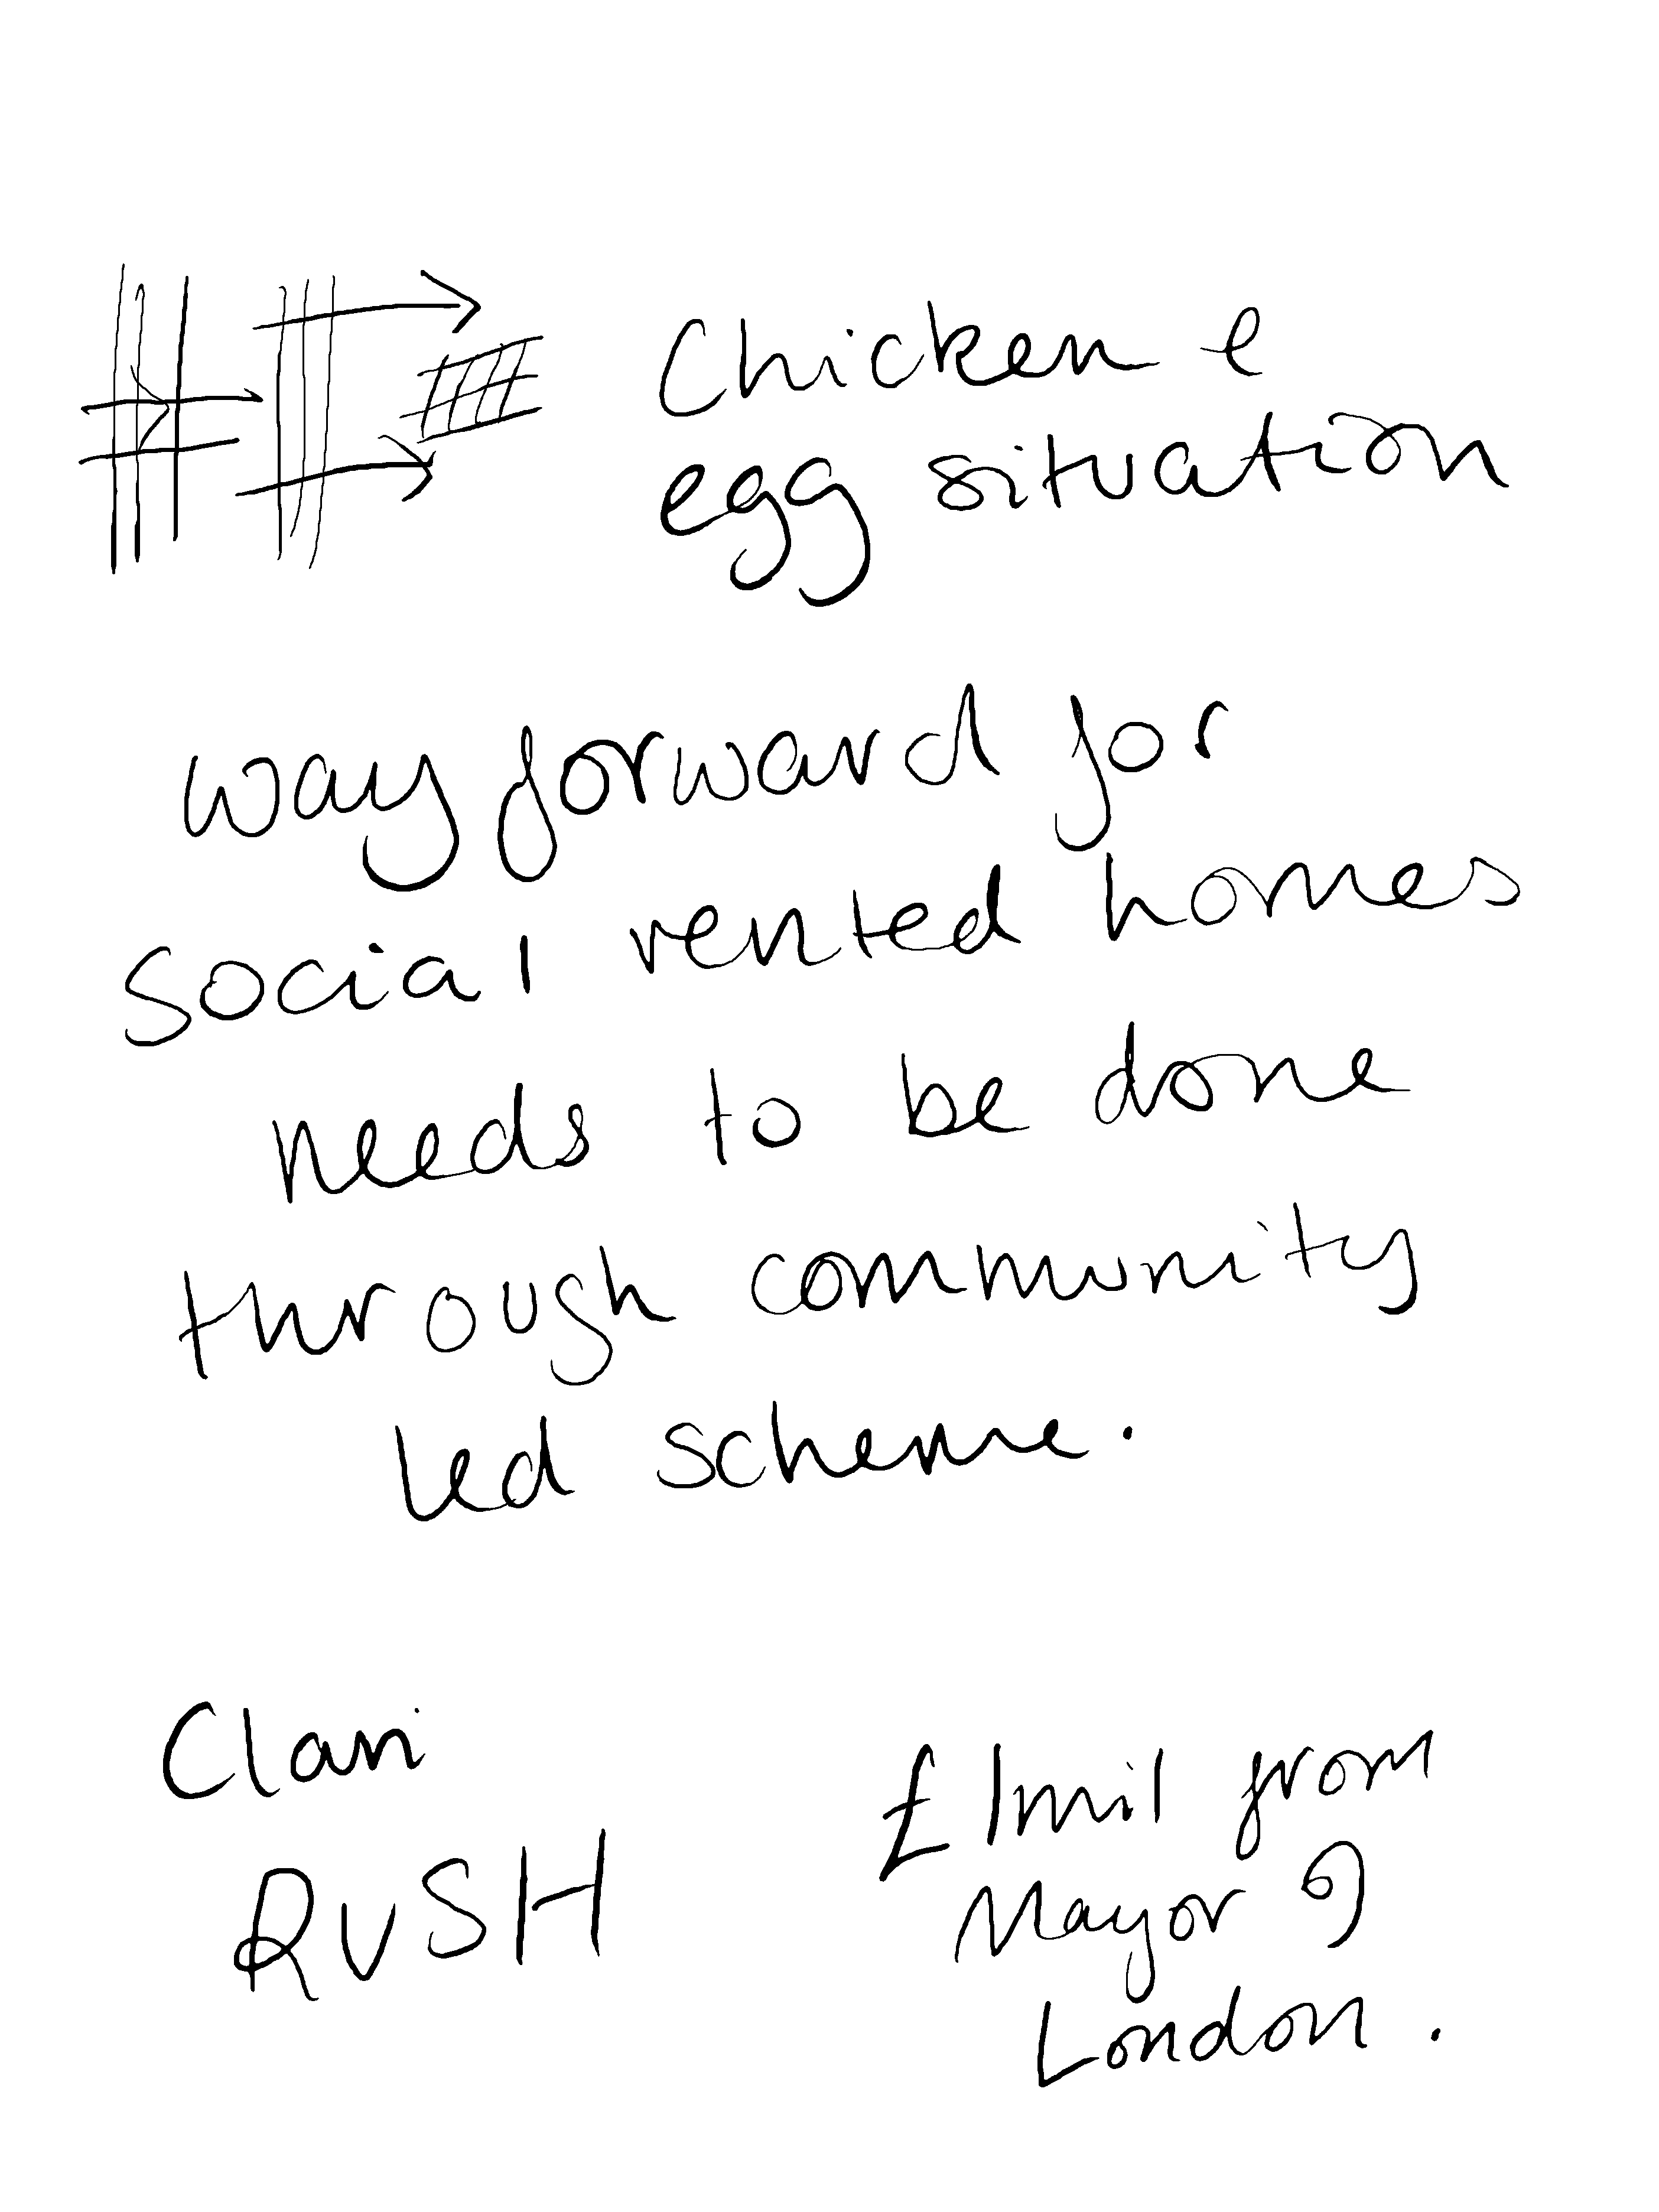 Chicken &
egg situation
way forward for
social rented homes
needs to be done
through community
led scheme.
Clari
RUSH
£1mil from
Mayor of
London.